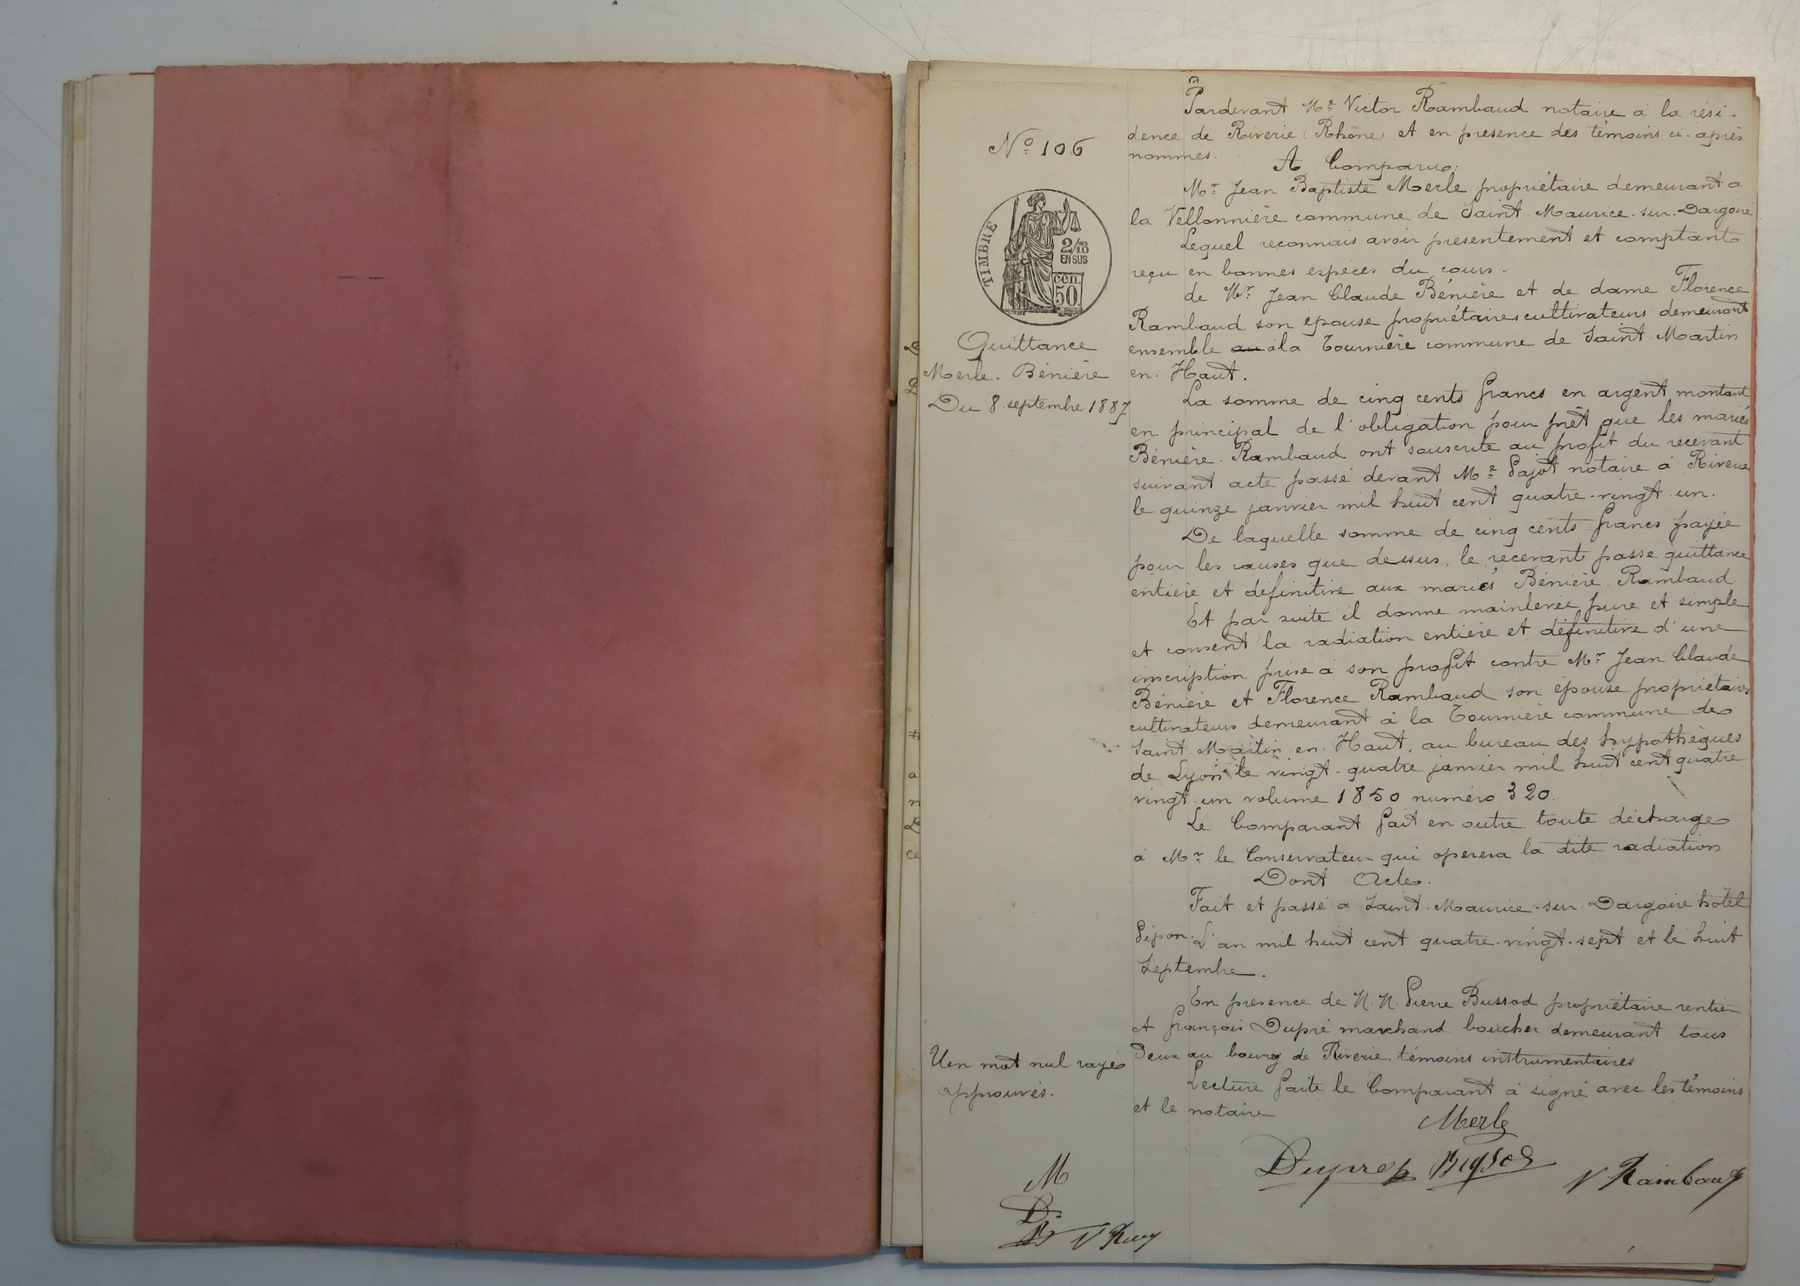 Nº 106
TIMBRE
2/10
EN SUS
cen.
50
Quittance
Merle. Bénière
Du 8 septembre 1887
Pardevant Mᵉ Victor Rambaud notaire à la rési-
dence de Riverie (Rhône) et en presence des témoins ci-après
nommés.
A Comparu:
Mʳ Jean Baptiste Merle propriétaire demeurant a
la Vellonnière commune de Saint-Maurice-sur-Dargoire
Lequel reconnais avoir presentement et comptant
reçu en bonnes espèces du cours.
de Mʳ Jean Claude Bénière et de dame Florence
Rambaud son épouse propriétaires cultivateurs demeurant
ensemble au à la Tournière commune de Saint Martin
en-Haut.
La somme de cinq cents francs en argent montant
en principal de l'obligation pour prêt que les mariés
Bénière-Rambaud ont souscrite au profit du recevant
suivant acte passé devant Mᵉ Pajot notaire à Riverie
le quinze janvier mil huit cent quatre-vingt-un.
De laquelle somme de cinq cents francs payée
pour les causes que dessus, le recevant passe quittance
entière et définitive aux mariés Bénière Rambaud
Et par suite il donne mainlevée pure et simple
et consent la radiation entière et définitive d'une
inscription prise à son profit contre Mʳ Jean Claude
Bénière et Florence Rambaud son épouse propriétaires
cultivateurs demeurant à la Tournière commune de
Saint-Martin-en-Haut, au bureau des hypothèques
de Lyon le vingt-quatre janvier mil huit cent quatre
vingt-un volume 1850 numéro 320.
Le Comparant fait en outre toute décharge
à Mʳ le Conservateur qui operera la dite radiation
Dont Acte.
Fait et passé a Saint-Maurice-sur-Dargoire hôtel
Pipon. L'an mil huit cent quatre-vingt-sept et le huit
Septembre.
En presence de M.M. Pierre Bussod propriétaire rentier
et françois Dupré marchand boucher demeurant tous
Deux au bourg de Riverie, témoins instrumentaires
Lecture faite le Comparant à signé avec les témoins
et le notaire
Un mot nul rayé
approuvés.
Merle
Dupre
V Rambaud
M